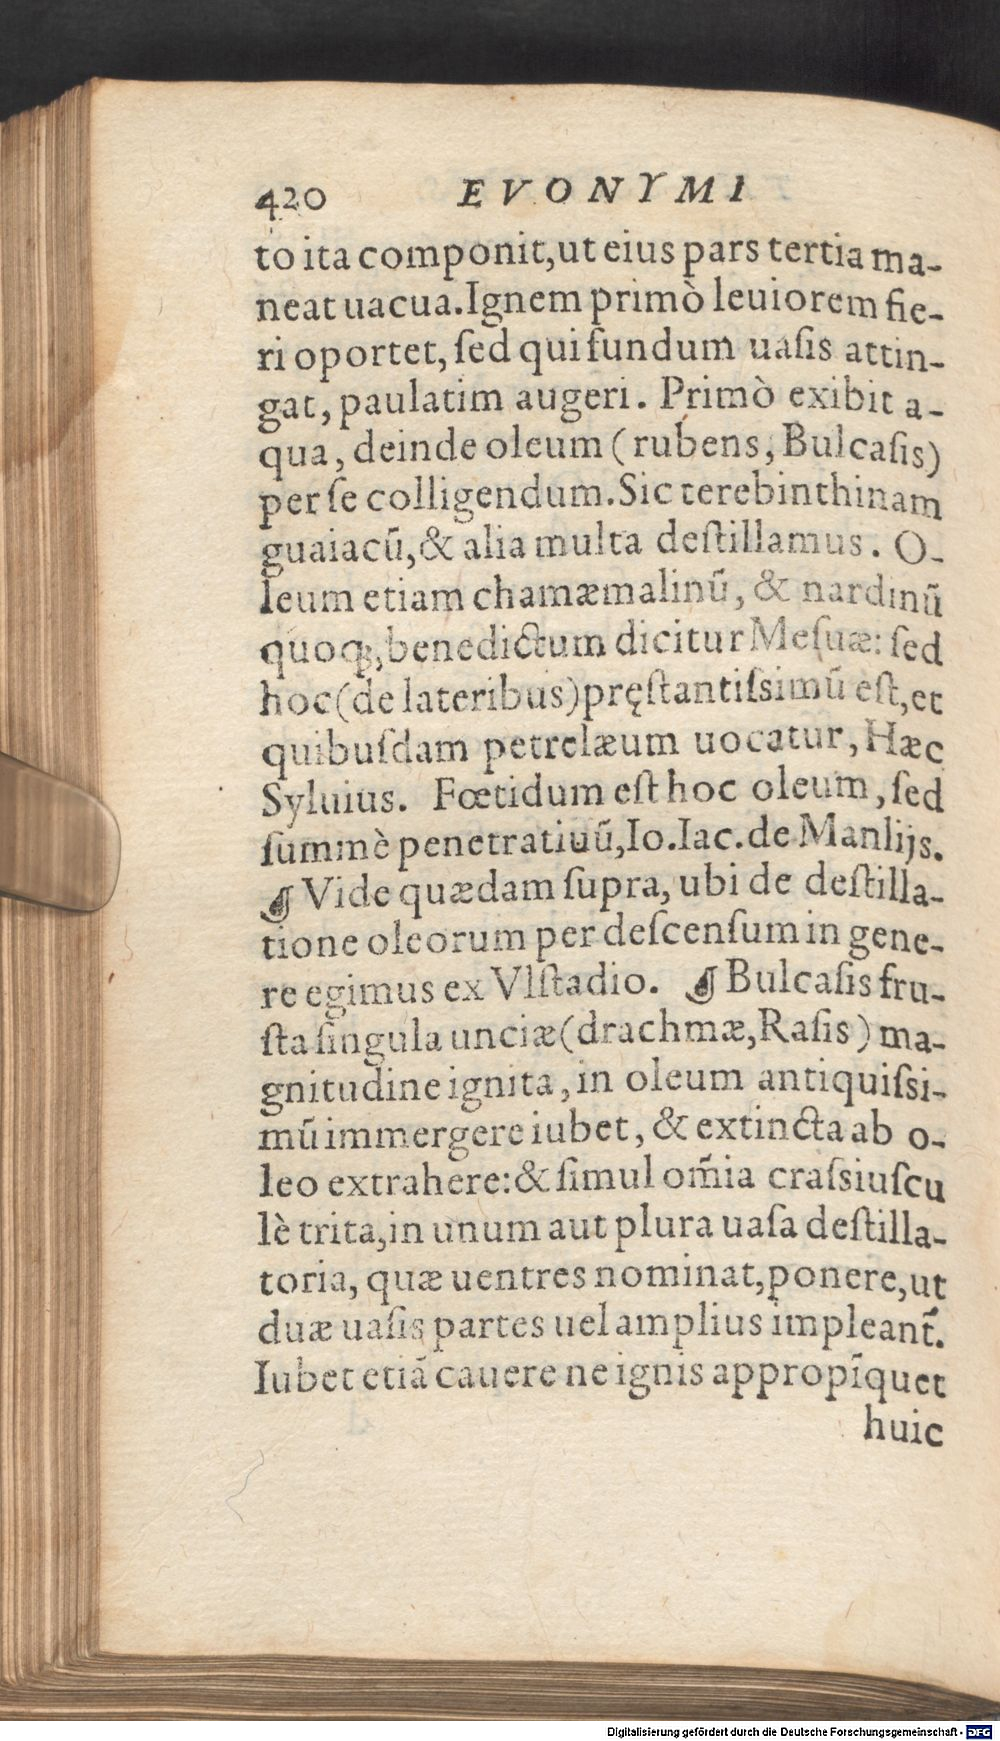 420 EVONYMI
to ita componit, ut eius pars tertia ma-
neat uacua. Ignem primò leuiorem fie-
ri oportet, ſed qui fundum uaſis attin-
gat, paulatim augeri. Primò exibit a-
qua, deinde oleum (rubens, Bulcaſis)
per ſe colligendum. Sic terebinthinam
guaiacũ, & alia multa deſtillamus. O-
leum etiam chamæmalinũ, & nardinũ
quoq;, benedictum dicitur Meſuæ: ſed
hoc (de lateribus) pręſtantiſsimũ eſt, et
quibuſdam petrelæum uocatur, Hæc
Syluius. Fœtidum eſt hoc oleum, ſed
ſummè penetratiuũ, Io. Iac. de Manlijs.
☙ Vide quædam ſupra, ubi de deſtilla-
tione oleorum per deſcenſum in gene-
re egimus ex Vlſtadio. ☙ Bulcaſis fru-
ſta ſingula unciæ (drachmæ, Raſis) ma-
gnitudine ignita, in oleum antiquiſsi-
mũ immergere iubet, & extincta ab o-
leo extrahere: & ſimul om̃ia craſsiuſcu
lè trita, in unum aut plura uaſa deſtilla-
toria, quæ uentres nominat, ponere, ut
duæ uaſis partes uel amplius impleant᷉.
Iubet etiã cauere ne ignis appropĩquet
huic
Digitalisierung gefördert durch die Deutsche Forschungsgemeinschaft - DFG